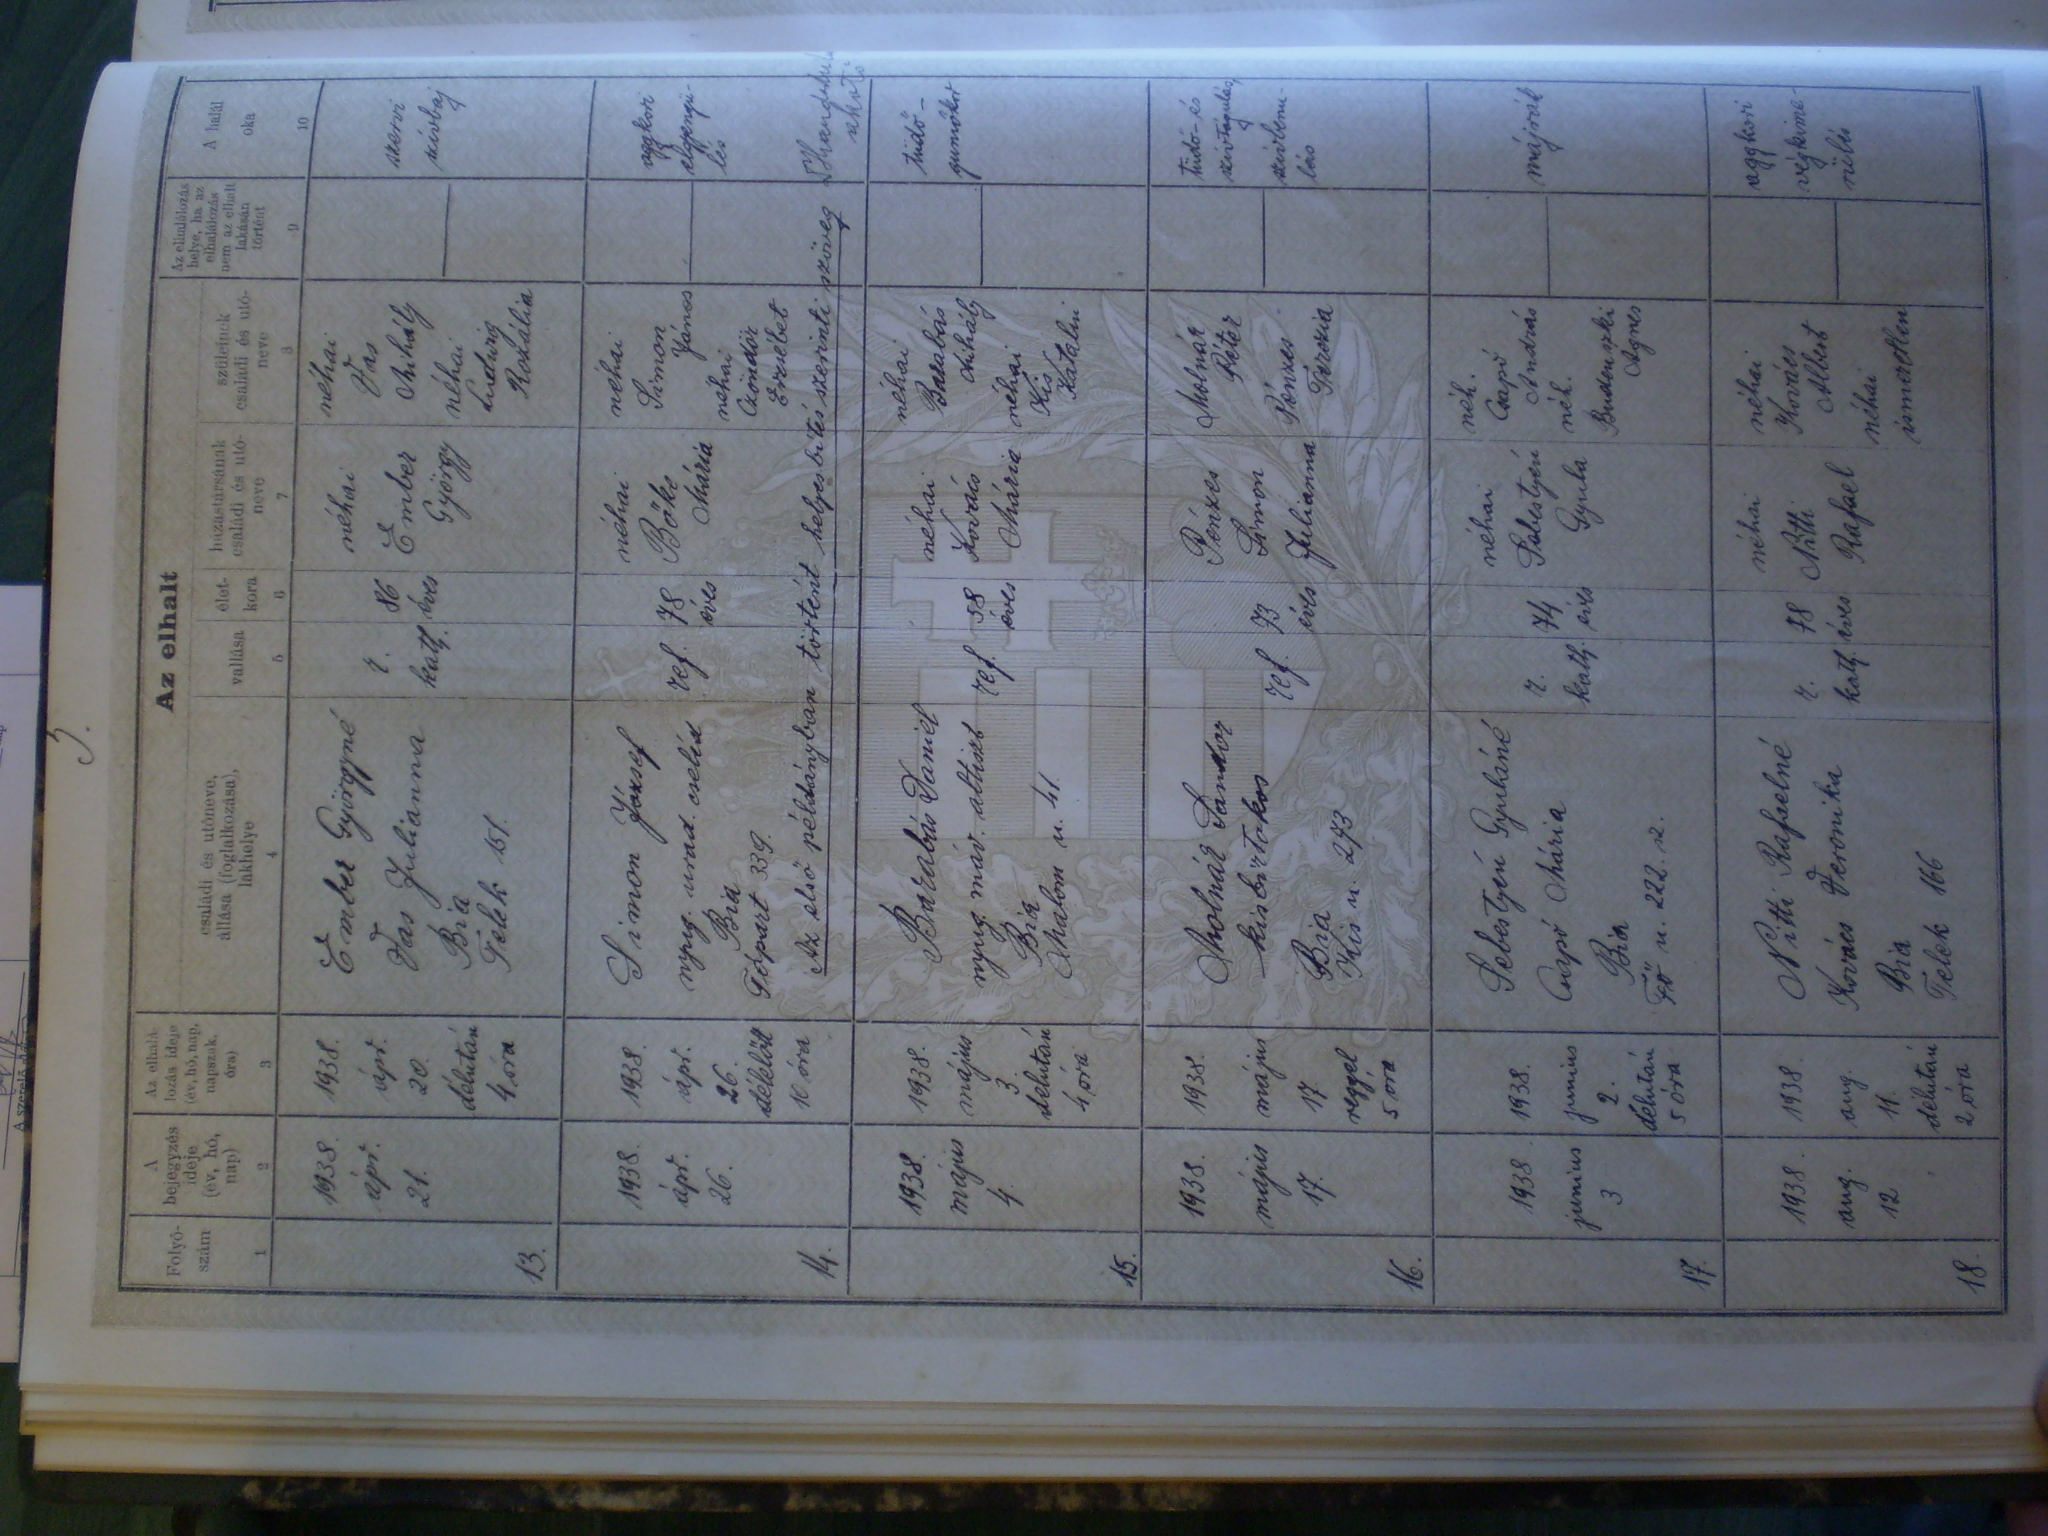 3.
Az elhalt
Folyó-
szám
A
bejegyzés
ideje
(év, hó,
nap)
Az elhalá-
lozás ideje
(év, hó, nap,
napszak,
óra)
családi és utóneve,
állása (foglalkozása),
lakhelye
vallása
élet-
kora
házastársának
családi és utó-
neve
szüleinek
családi és utó-
neve
Az elhalálozás
helye, ha az
elhalálozás
nem az elhalt
lakásán
történt
A halál
oka
1 2 3 4 5 6 7 8 9 10
13.
1938.
ápr.
21.
1938.
ápr.
20.
délután
4 óra
Ember Györgyné
Vas Julianna
Bia
Telek 151.
r.
kath.
86
éves
néhai
Ember
György
néhai
Vas
Mihály
néhai
Ludwig
Rozália
szervi
szívbaj
14.
1938.
ápr.
26.
1938.
ápr.
26.
délelőtt
10 óra
Simon József
nyug. urad. cseléd
Bia
Tópart 339.
ref.
78
éves
néhai
Bőke
Mária
néhai
Simon
János
néhai
Czindőr
Erzsébet
aggkori
elgyengü-
lés
Az első példányban történt helyesbítés szerinti szöveg
15.
1938.
május
4.
1938.
május
3.
délután
4 óra
Barabás Dániel
nyug. máv. altiszt
Bia
Malom u. 41.
ref.
58
éves
néhai
Kovács
Mária
néhai
Barabás
Mihály
néhai
Kis
Katalin
tüdő-
gümőkór
16.
1938.
május
17.
1938.
május
17.
reggel
5 óra
Molnár Sándor
kisbirtokos
Bia
Kis u. 273
ref.
73
éves
Pénzes
Simon
Julianna
Molnár
Péter
Pénzes
Terézia
tüdő- és
szívtágulás,
szívbénu-
lás
17.
1938.
junius
3
1938.
junius
2.
délután
5 óra
Sebestyén Gyuláné
Csapó Mária
Bia
Fő u. 222. sz.
r.
kath.
74
éves
néhai
Sebestyén
Gyula
néh.
Csapó
András
néh.
Budenszki
Ágnes
májrák
18.
1938.
aug.
12
1938.
aug.
11.
délután
2 óra
Nitti Rafaelné
Kovács Veronika
Bia
Telek 166
r.
kath.
78
éves
néhai
Nitti
Rafael
néhai
Kovács
Albert
néhai
ismeretlen
aggkori
végkime-
rülés